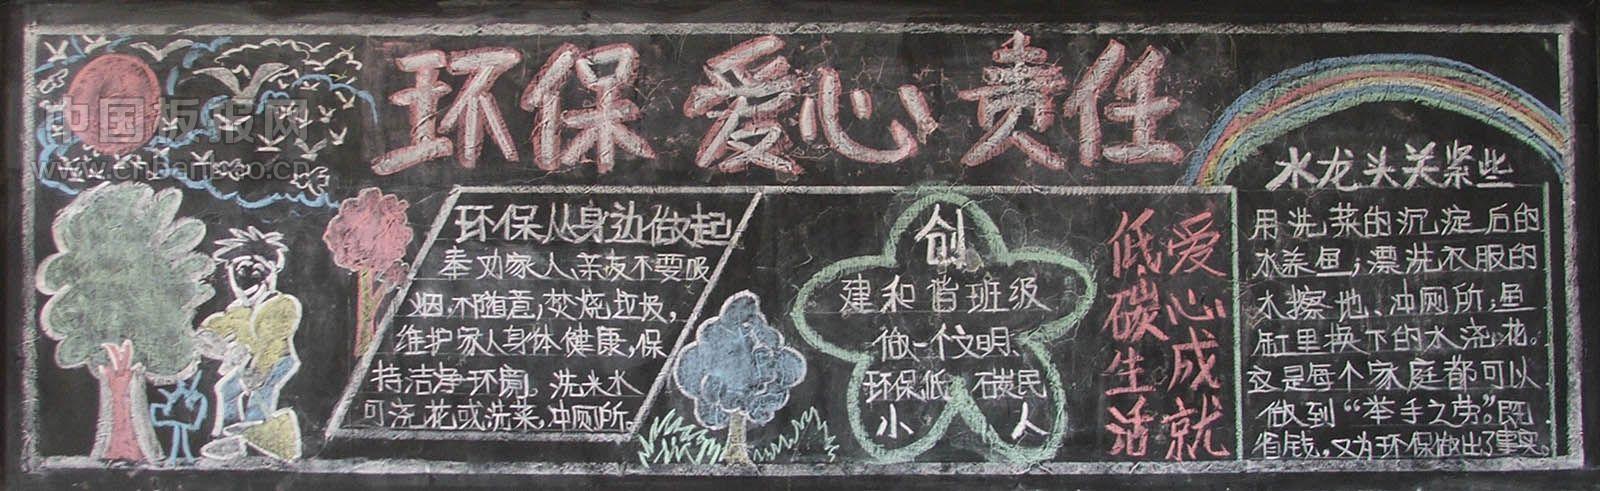 中国板报网
www.cnbanboo.cn
环保 爱心 责任
环保从身边做起
奉劝家人、亲友不要吸
烟,不随意,焚烧垃圾,
维护家人身体健康,保
持洁净环境。洗米水
可浇花或洗菜,冲厕所。
创
建和谐班级
做一个文明、
环保低碳民
小人
爱心成就
低碳生活
水龙头关紧些
用洗菜的沉淀后的
水养鱼;漂洗衣服的
水擦地、冲厕所;鱼
缸里换下的水浇花。
这是每个家庭都可以
做到“举手之劳”。既
省钱,又为环保做出了事实。